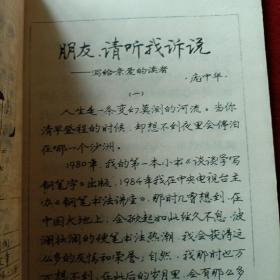 朋友,请听我诉说
——写给亲爱的读者
庞中华
(一)
人生是一条变幻莫测的河流。当你
清早登程的时候,却想不到夜里会停泊
在哪一个沙洲。
1980年,我的第一本小书《谈谈学写
钢笔字》出版,1984年我在中央电视台主
办《钢笔书法讲座》。那时几曾想到,在
中国大地上,会掀起如此经久不息、波
澜壮阔的硬笔书法热潮,我会获得这
么多的友情和荣誉。自然,我那时也万
万想不到,在此后的岁月里,会有那么多